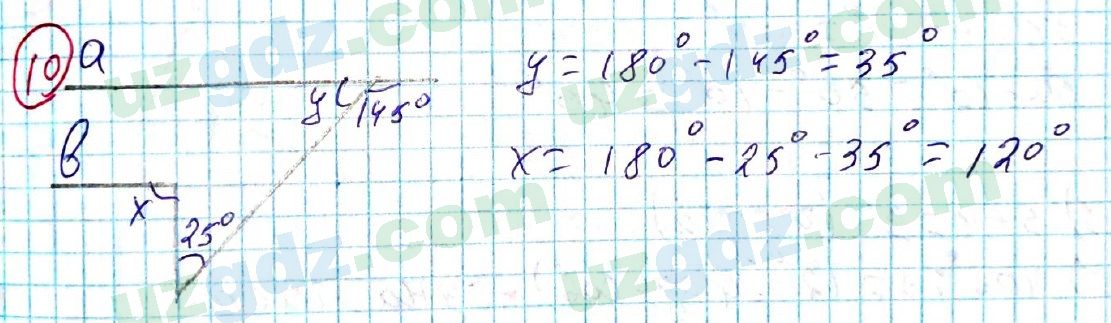 10
a
y 145°
в
x
25°
y = 180° - 145° = 35°
x = 180° - 25° - 35° = 120°
uzgdz.com
uzgdz.com
uzgdz.com
uzgdz.com
uzgdz.com
uzgdz.com